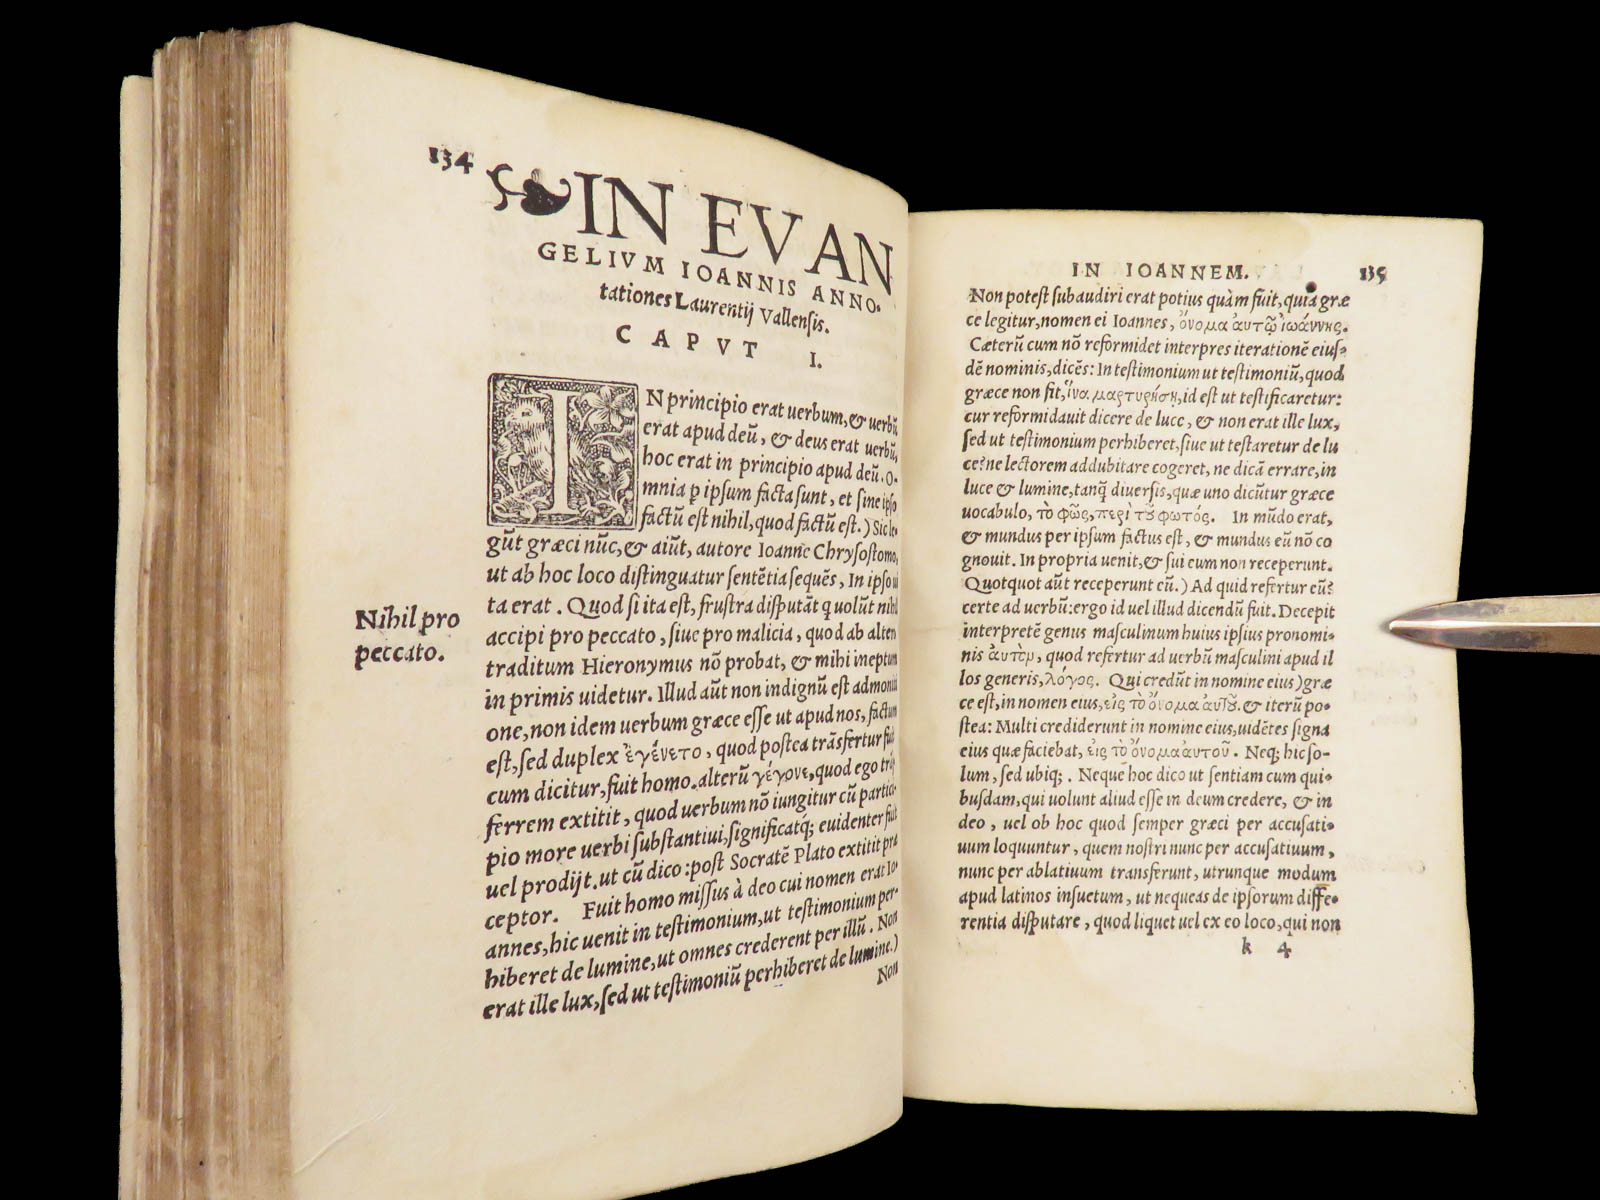 134
IN EVAN
GELIVM IOANNIS ANNO-
tationes Laurentij Vallensis.
CAPVT I.
IN principio erat uerbum, & uerbũ
erat apud deũ, & deus erat uerbũ,
hoc erat in principio apud deũ. O-
mnia p ipsum facta sunt, et sine ipso
factũ est nihil, quod factũ est.) Sic le-
gũt græci nũc, & aiũt, autore Ioanne Chrysostomo,
ut ab hoc loco distinguatur sentẽtia sequẽs, In ipso ui
ta erat. Quod si ita est, frustra disputãt q uolũt nihil
accipi pro peccato, siue pro malicia, quod ab altero
Nihil pro
peccato.
traditum Hieronymus nõ probat, & mihi ineptum
in primis uidetur. Illud aũt non indignũ est admoniti
one, non idem uerbum græce esse ut apud nos, factum
est, sed duplex ἐγένετο, quod postea trãsfertur fuit
cum dicitur, fuit homo. alterũ γέγονε, quod ego trãs
ferrem extitit, quod uerbum nõ iungitur cũ partici-
pio more uerbi substantiui, significatq; euidenter fuit
uel prodijt. ut cũ dico: post Socratẽ Plato extitit præ
ceptor. Fuit homo missus à deo cui nomen erat Io-
annes, hic uenit in testimonium, ut testimonium per-
hiberet de lumine, ut omnes crederent per illũ. Non
erat ille lux, sed ut testimoniũ perhiberet de lumine.)
Non
IN IOANNEM. 135
Non potest subaudiri erat potius quàm fuit, quia græ
ce legitur, nomen ei Ioannes, ὄνομα ἀυτῷ ἰωάννης.
Cæterũ cum nõ reformidet interpres iterationẽ eius-
dẽ nominis, dicẽs: In testimonium ut testimoniũ, quod
græce non fit, ἵνα μαρτυρήσῃ, id est ut testificaretur:
cur reformidauit dicere de luce, & non erat ille lux,
sed ut testimonium perhiberet, siue ut testaretur de lu
ce? ne lectorem addubitare cogeret, ne dicã errare, in
luce & lumine, tanq̃ diuersis, quæ uno dicũtur græce
uocabulo, τὸ φῶς, περὶ τοῦ φωτός. In mũdo erat,
& mundus per ipsum factus est, & mundus eũ nõ co
gnouit. In propria uenit, & sui eum non receperunt.
Quotquot aũt receperunt eũ.) Ad quid refertur eũ?
certe ad uerbũ: ergo id uel illud dicendũ fuit. Decepit
interpretẽ genus masculinum huius ipsius pronomi-
nis ἀυτὸν, quod refertur ad uerbũ masculini apud il
los generis, λόγος. Qui credũt in nomine eius) græ
ce est, in nomen eius, εἰς τὸ ὄνομα ἀυτοῦ. & iterũ po-
stea: Multi crediderunt in nomine eius, uidẽtes signa
eius quæ faciebat, εἰς τὸ ὄνομα ἀυτοῦ. Neq; hic so-
lum, sed ubiq;. Neque hoc dico ut sentiam cum qui-
busdam, qui uolunt aliud esse in deum credere, & in
deo, uel ob hoc quod semper græci per accusati-
uum loquuntur, quem nostri nunc per accusatiuum,
nunc per ablatiuum transferunt, utrunque modum
apud latinos insuetum, ut nequeas de ipsorum diffe-
rentia disputare, quod liquet uel ex eo loco, qui non
k 4